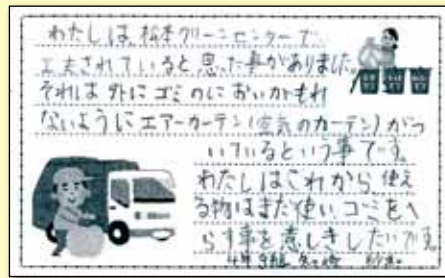 わたしは、松本クリーンセンターで
工夫されていると思った事がありました。
それは外にゴミのにおいがもれ
ないようにエアーカーテン(空気のカーテン)がつ
いているという事です。
わたしはこれから、使え
る物はまた使い、ゴミをへ
らす事を意しきしたいです。
4年3組